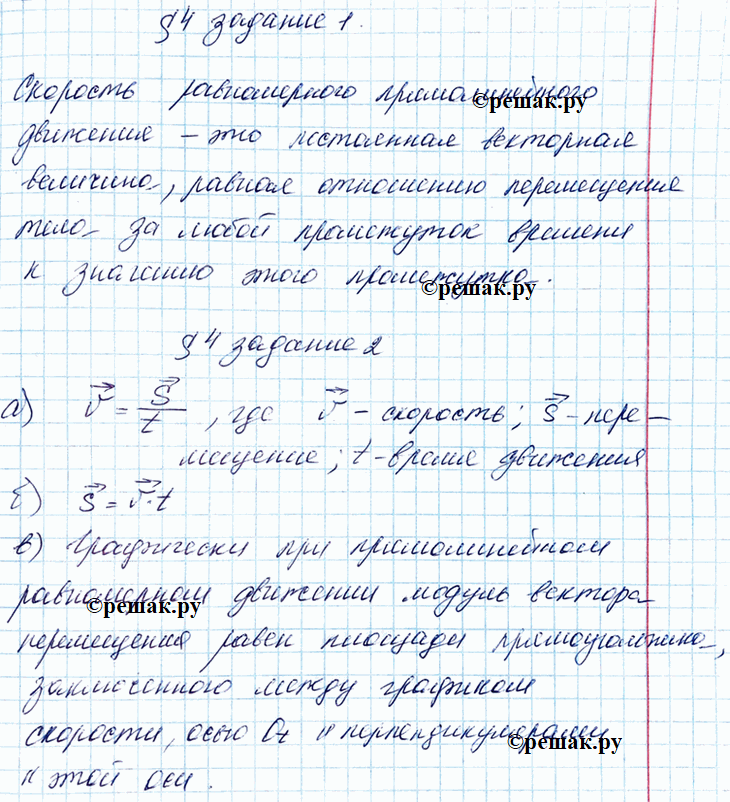 §4 задание 1.
Скорость равномерного прямолинейного
©решак.ру
движения – это постоянная векторная
величина, равная отношению перемещения
тела за любой промежуток времени
к значению этого промежутка.
©решак.ру
§4 задание 2
а) v⃗ = s⃗/t, где v⃗ – скорость; s⃗ – пере-
мещение; t – время движения
б) s⃗ = v⃗·t
в) Графически при прямолинейном
равномерном движении модуль вектора
©решак.ру
перемещения равен площади прямоугольника,
заключенного между графиком
скорости, осью Ot и перпендикулярами
©решак.ру
к этой оси.